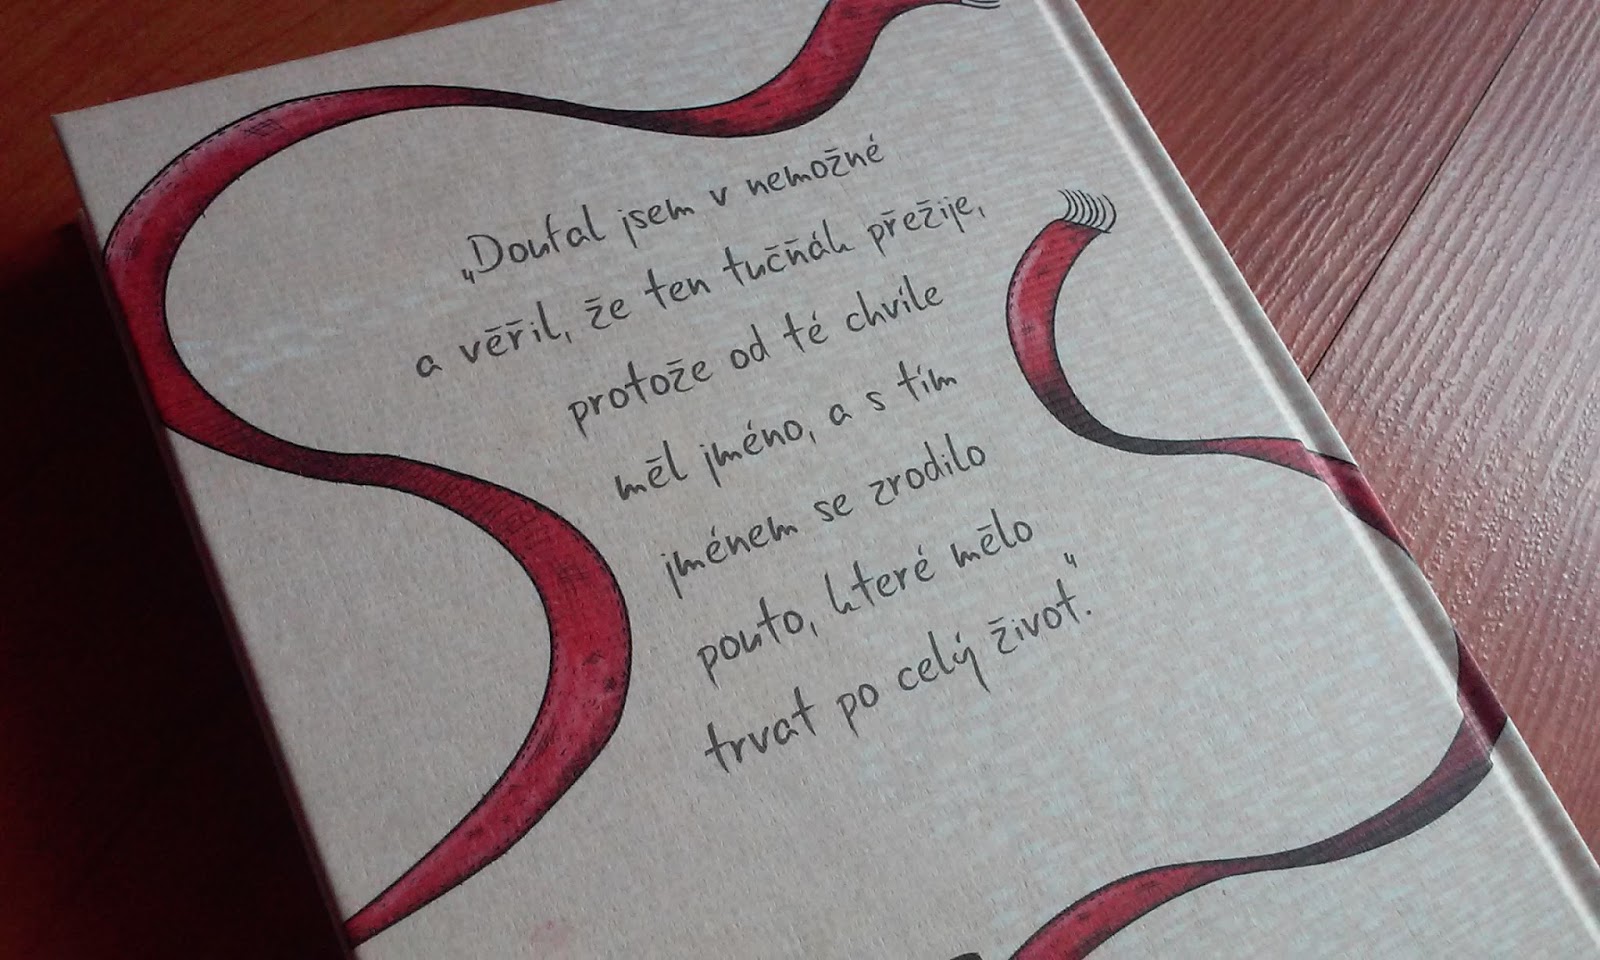 „Doufal jsem v nemožné
a věřil, že ten tučňák přežije,
protože od té chvíle
měl jméno, a s tím
jménem se zrodilo
pouto, které mělo
trvat po celý život.“